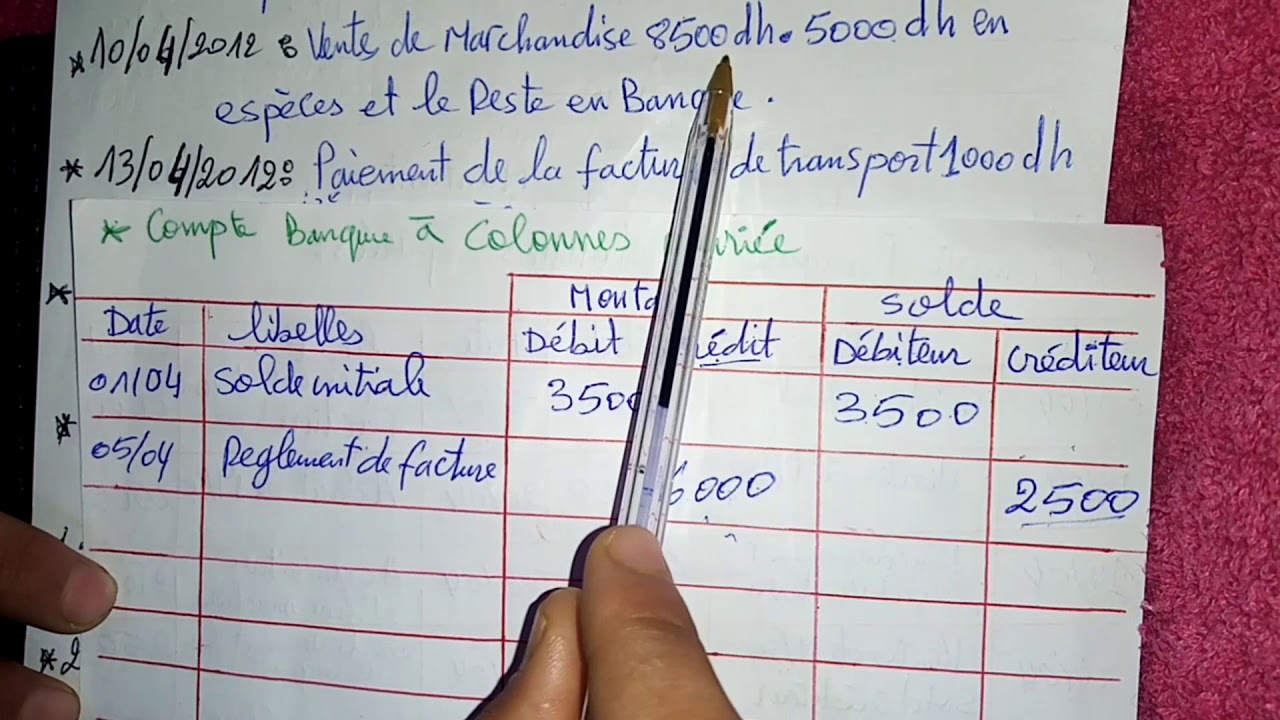 *10/04/2012 : Vente de Marchandise 8500dh. 5000 dh en
espèces et le Reste en Banque.
* 13/04/2012: Paiement de la facture de transport 1000dh
* Compte Banque à Colonnes
Solde
Date libelles Débit Crédit Débiteur Créditeur
01/04 Solde initiale 3500 3500
05/04 Reglement de facture 6000 2500
*2